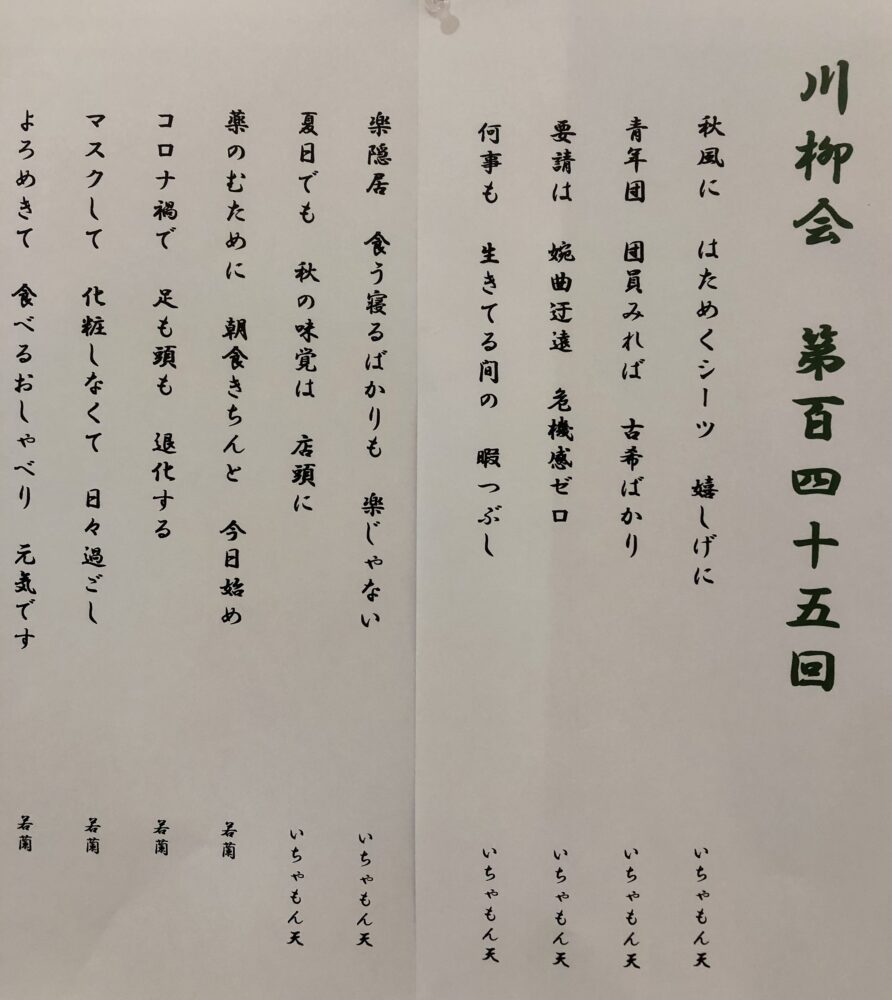 川柳会 第百四十五回
秋風に はためくシーツ 嬉しげに いちゃもん天
青年団 団員みれば 古希ばかり いちゃもん天
要請は 婉曲迂遠 危機感ゼロ いちゃもん天
何事も 生きてる間の 暇つぶし いちゃもん天
楽隠居 食う寝るばかりも 楽じゃない いちゃもん天
夏日でも 秋の味覚は 店頭に いちゃもん天
薬のむために 朝食きちんと 今日始め 若蘭
コロナ禍で 足も頭も 退化する 若蘭
マスクして 化粧しなくて 日々過ごし 若蘭
よろめきて 食べるおしゃべり 元気です 若蘭